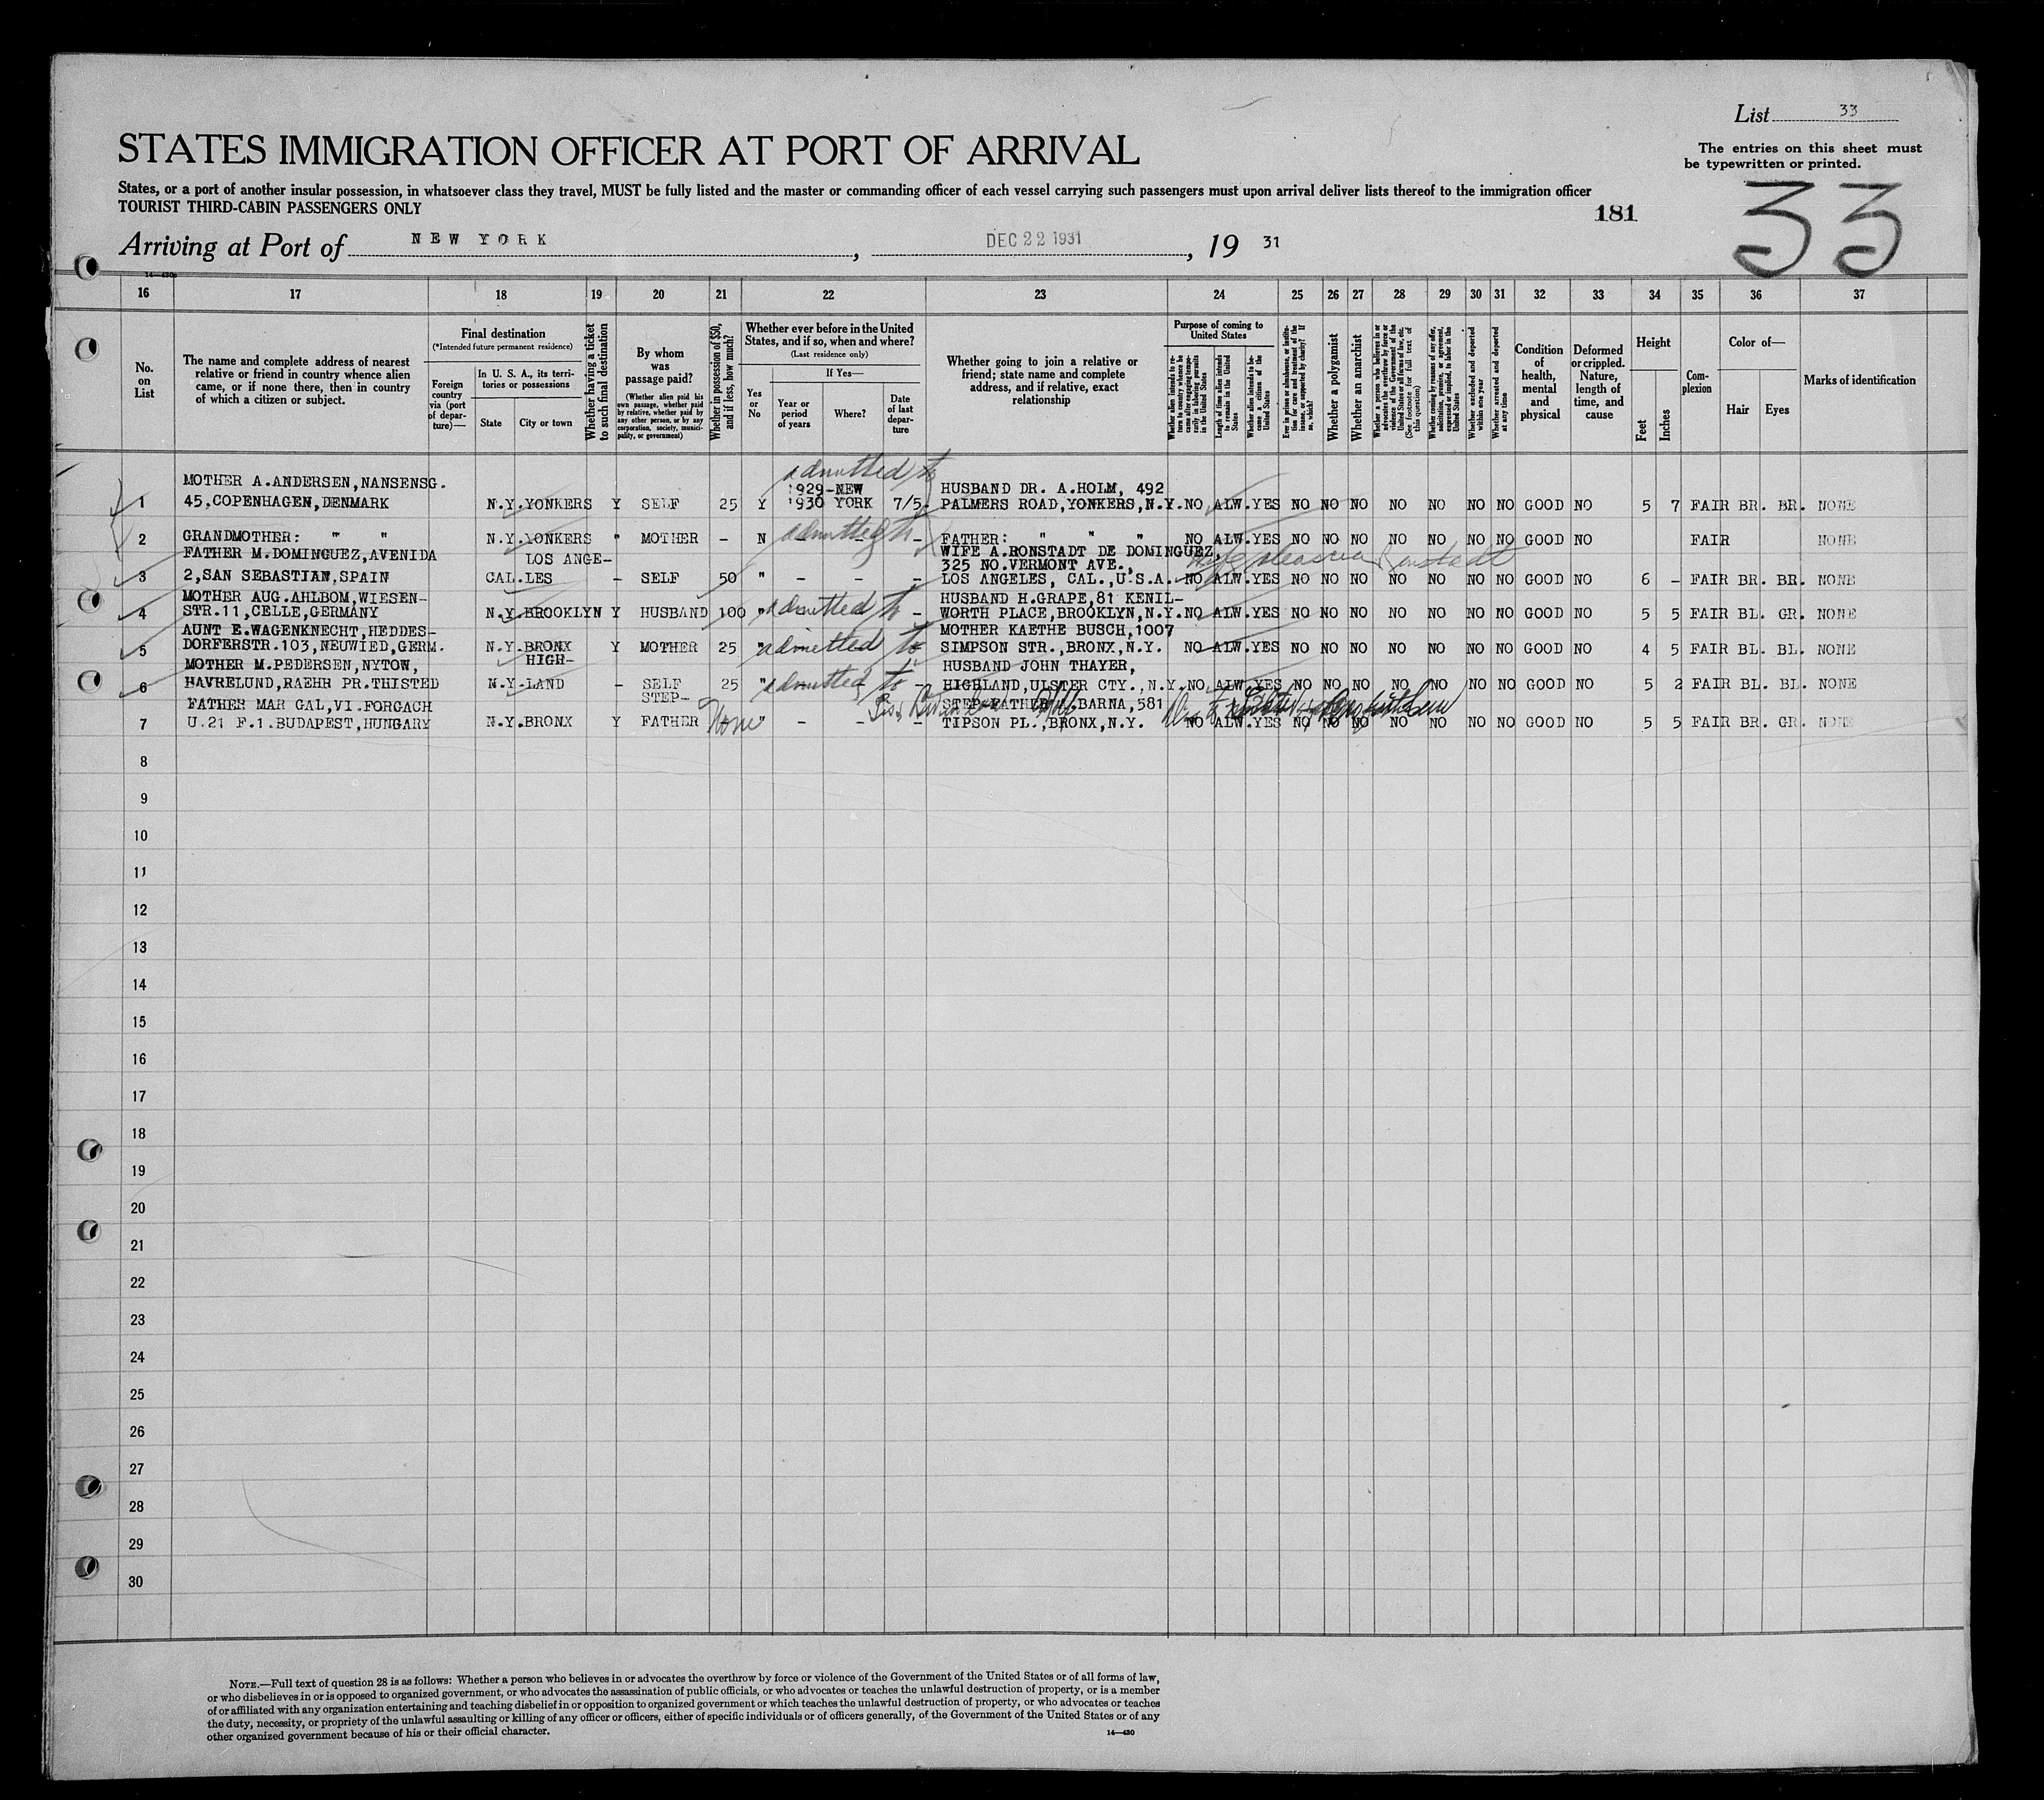 List 33
STATES IMMIGRATION OFFICER AT PORT OF ARRIVAL
The entries on this sheet must
be typewritten or printed.
States, or a port of another insular possession, in whatsoever class they travel, MUST be fully listed and the master or commanding officer of each vessel carrying such passengers must upon arrival deliver lists thereof to the immigration officer
TOURIST THIRD-CABIN PASSENGERS ONLY
181
33
Arriving at Port of NEW YORK, DEC 22 1931, 19 31
14-430
16 17 18 19 20 21 22 23 24 25 26 27 28 29 30 31 32 33 34 35 36 37
No. on List
The name and complete address of nearest relative or friend in country whence alien came, or if none there, then in country of which a citizen or subject.
Final destination
(*Intended future permanent residence)
Foreign country via (port of departure)—
In U. S. A., its territories or possessions
State
City or town
Whether having a ticket to such final destination
By whom was passage paid?
(Whether alien paid his own passage, whether paid by relative, whether paid by any other person, or by any corporation, society, municipality, or government)
Whether in possession of $50, and if less, how much?
Whether ever before in the United States, and if so, when and where?
(Last residence only)
Yes or No
If Yes—
Year or period of years
Where?
Date of last departure
Whether going to join a relative or friend; state name and complete address, and if relative, exact relationship
Purpose of coming to United States
Whether alien intends to return to country whence he came after engaging temporarily in laboring pursuits in the United States
Length of time alien intends to remain in the United States
Whether alien intends to become a citizen of the United States
Ever in prison or almshouse, or institution for care and treatment of the insane, or supported by charity? If so, which?
Whether a polygamist
Whether an anarchist
Whether a person who believes in or advocates the overthrow by force or violence of the Government of the United States or all forms of law, etc. (See footnote for full text of this question)
Whether coming by reason of any offer, solicitation, promise, or agreement, expressed or implied, to labor in the United States
Whether excluded and deported within one year
Whether arrested and deported at any time
Condition of health, mental and physical
Deformed or crippled. Nature, length of time, and cause
Height
Feet
Inches
Complexion
Color of—
Hair
Eyes
Marks of identification
admitted to
MOTHER A.ANDERSEN,NANSENSG. 1929-NEW HUSBAND DR. A.HOLM, 492
1 45,COPENHAGEN,DENMARK N.Y.YONKERS Y SELF 25 Y 1930 YORK 7/5. PALMERS ROAD,YONKERS,N.Y. NO ALW.YES NO NO NO NO NO NO NO GOOD NO 5 7 FAIR BR. BR. NONE
admitted to
2 GRANDMOTHER: " " N.Y.YONKERS " MOTHER - N - - - FATHER: " " " NO ALW.YES NO NO NO NO NO NO NO GOOD NO FAIR NONE
FATHER M.DOMINGUEZ,AVENIDA LOS ANGE- WIFE A.RONSTADT DE DOMINGUEZ,
325 NO.VERMONT AVE.,
3 2,SAN SEBASTIAN,SPAIN CAL.LES - SELF 50 " - - - LOS ANGELES, CAL.,U.S.A. NO ALW.YES NO NO NO NO NO NO NO GOOD NO 6 - FAIR BR. BR. NONE
MOTHER AUG.AHLBOM,WIESEN- HUSBAND H.GRAPE,81 KENIL-
4 STR.11,CELLE,GERMANY N.Y.BROOKLYN Y HUSBAND 100 " admitted to - WORTH PLACE,BROOKLYN,N.Y. NO ALW.YES NO NO NO NO NO NO NO GOOD NO 5 5 FAIR BL. GR. NONE
AUNT E.WAGENKNECHT,HEDDES- MOTHER KAETHE BUSCH,1007
5 DORFERSTR.103,NEUWIED,GERM. N.Y.BRONX Y MOTHER 25 " admitted to SIMPSON STR.,BRONX,N.Y. NO ALW.YES NO NO NO NO NO NO NO GOOD NO 4 5 FAIR BL. BL. NONE
MOTHER M.PEDERSEN,NYTOW, HIGH- HUSBAND JOHN THAYER,
6 HAVRELUND,RAEHR PR.THISTED N.Y.LAND - SELF 25 " admitted to - HIGHLAND,ULSTER CTY.,N.Y. NO ALW.YES NO NO NO NO NO NO NO GOOD NO 5 2 FAIR BL. BL. NONE
FATHER MAR GAL,VI.FORGACH STEP- STEP-FATHER BARNA,581
7 U.21 F.1.BUDAPEST,HUNGARY N.Y.BRONX Y FATHER None " - - - TIPSON PL.,BRONX,N.Y. NO ALW.YES NO NO NO NO NO NO NO GOOD NO 5 5 FAIR BR. GR. NONE
8
9
10
11
12
13
14
15
16
17
18
19
20
21
22
23
24
25
26
27
28
29
30
NOTE.—Full text of question 28 is as follows: Whether a person who believes in or advocates the overthrow by force or violence of the Government of the United States or of all forms of law,
or who disbelieves in or is opposed to organized government, or who advocates the assassination of public officials, or who advocates or teaches the unlawful destruction of property, or is a member
of or affiliated with any organization entertaining and teaching disbelief in or opposition to organized government or which teaches the unlawful destruction of property, or who advocates or teaches
the duty, necessity, or propriety of the unlawful assaulting or killing of any officer or officers, either of specific individuals or of officers generally, of the Government of the United States or of any
other organized government because of his or their official character.
14-430